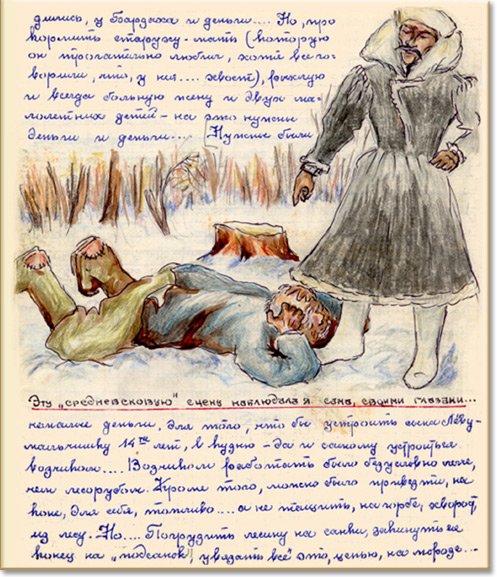 дились, у Бардаха и деньги.... Но, про
кормить старуху-мать (которую
он трогательно любил, хотя все го-
ворили, что, у нея.... хвост), рыхлую
и всегда больную жену и двух ма-
лолетних детей - на это нужны
деньги и деньги.... Нужны были
Эту „средневековую" сцену наблюдала я сама, своими глазами...
немалые деньги, для того, что бы устроить сына Лёву
мальчишку 14ти лет, в кудню - да и самому устроиться
возчиком.... Возчиком работать было безусловно легче,
чем лесорубом. Кроме того, можно было привезти, на
коне, для себя, топливо.... а не тащить, на горбе, хворост,
из лесу. Но.... Погрузить лесину на санки, закинуть ея
конец на „подсанок", увязать всё это, цепью, на морозе...